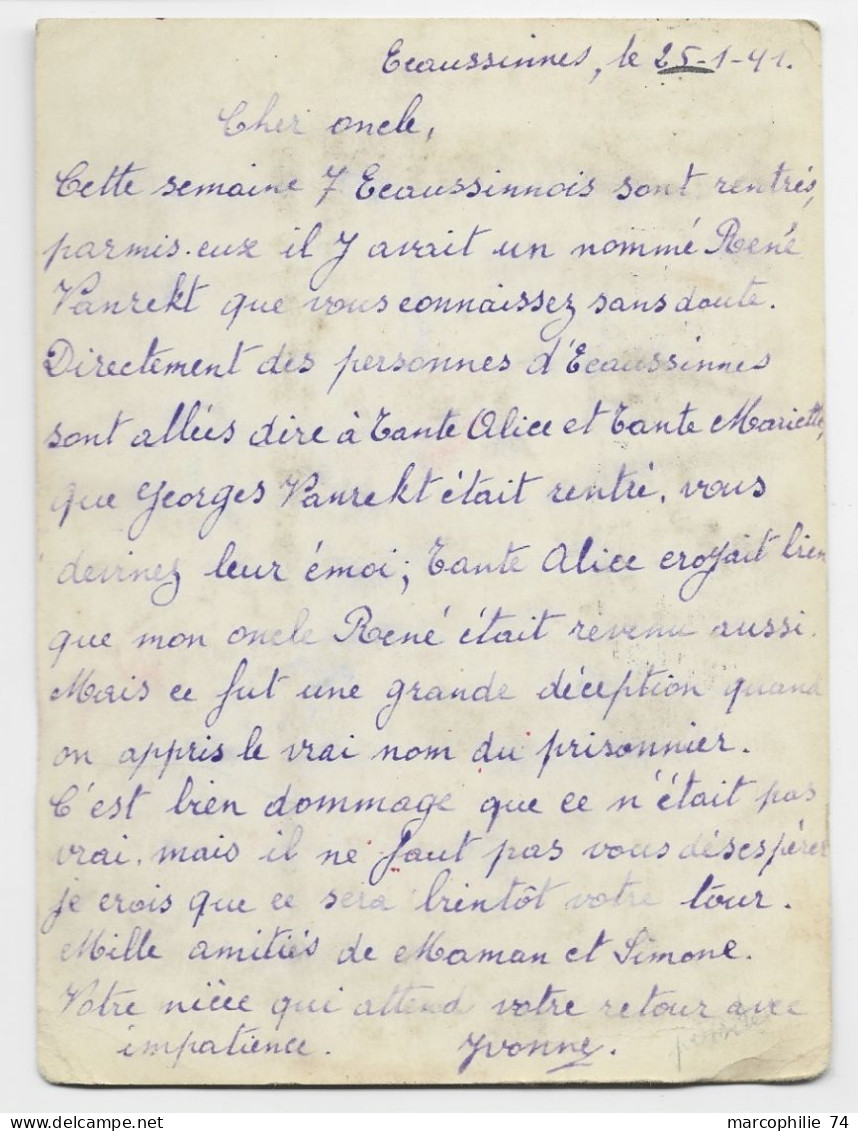 Ecaussinnes, le 25-1-41.
Cher oncle,
Cette semaine 7 Ecaussinnois sont rentrés,
parmis-eux il y avait un nommé René
Vanrekt que vous connaissez sans doute.
Directement des personnes d'Ecaussinnes
sont allées dire à Tante Alice et Tante Mariette,
que Georges Vanrekt était rentré, vous
devinez leur émoi; Tante Alice croyait bien
que mon oncle René était revenu aussi.
Mais ce fut une grande déception quand
on appris le vrai nom du prisonnier.
C'est bien dommage que ce n'était pas
vrai, mais il ne faut pas vous désespérer
je crois que ce sera bientôt votre tour.
Mille amitiés de Maman et Simone.
Votre nièce qui attend votre retour avec
impatience. Yvonne.
marcophilie 74